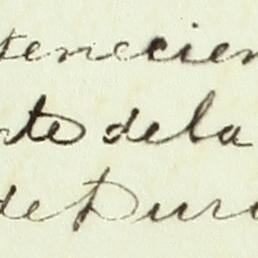 tenecien
rte de la
de Dura